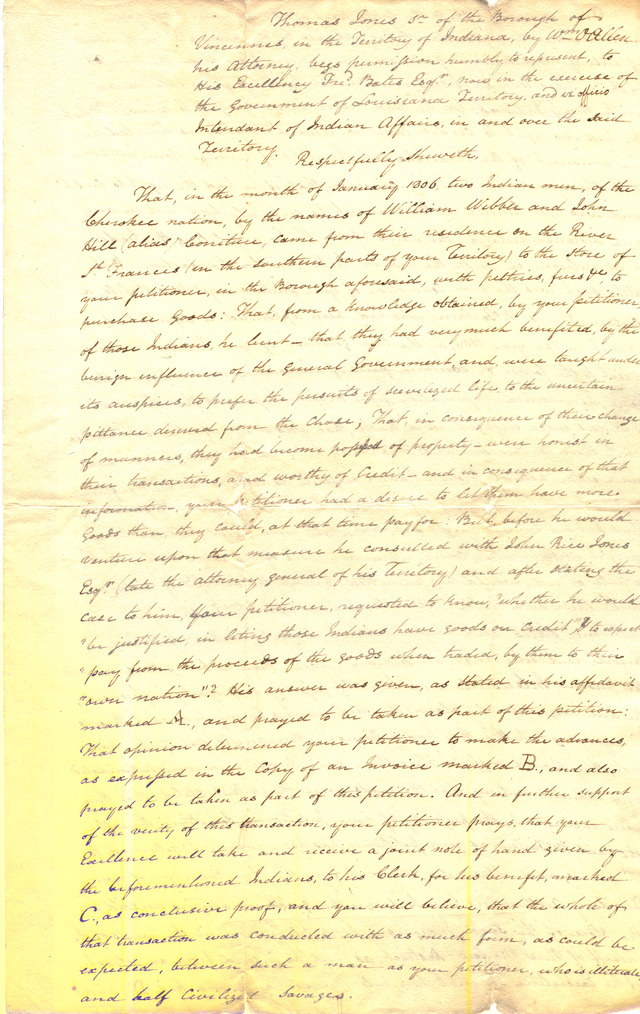 Thomas Jones Sr. of the Borough of
Vincennes, in the Territory of Indiana, by Wm. V Allen
his Attorney, begs permission humbly to represent, to
His Excellency Fred. Bates Esqr., now in the exercise of
the Government of Louisiana Territory, and ex officio
Intendant of Indian Affairs, in and over the said
Territory.
Respectfully Sheweth,
That, in the month of January 1806 two Indian men, of the
Cherokee nation, by the names of William Webber and John
Hill (alias) came from their residence on the River
St. Frances (in the southern parts of your Territory) to the Store of
your petitioner, in the Borough aforesaid, with peltries, furs &c to
purchase goods: That, from a knowledge obtained, by your petitioner
of those Indians, he learnt - that they had very much benefited, by the
benign influence of the General Government, and, were taught under
its auspices, to prefer the pursuits of sciverized life, to the uncertain
pittance derived from the Chase; That, in consequence of their change
of manners, they had become possessed of property - were honest in
their transactions, and worthy of Credit - and in consequence of that
information, your petitioner had a desire to let them have more
Goods than, they could, at that time pay for: But, before he would
venture upon that measure he consulted with John Rice Jones
Esqr. (late the attorney general of his Territory) and after stating the
case to him, your petitioner, requested to know, "whether he would
"be justified, in leting those Indians have goods on Credit", & to expect
"pay from the proceeds of the goods when traded, by them to their
"own nation"? His answer was given, as stated in his affidavit
marked A., and prayed to be taken as part of this petition:
That opinion determined your petitioner to make the advances,
as expressed in the Copy of an Invoice marked B., and also
prayed to be taken as part of this petition. And in further support
of the verity of this transaction, your petitioner prays, that your
Excellence will take and receive a joint note of hand given by
the beforementioned Indians, to his Clerk, for his benefit, marked
C., as conclusive proof, and you will believe, that the whole of
that transaction was conducted with as much form, as could be
expected, between such a man as your petitioner, who is illiterate,
and half Civilized Savages.